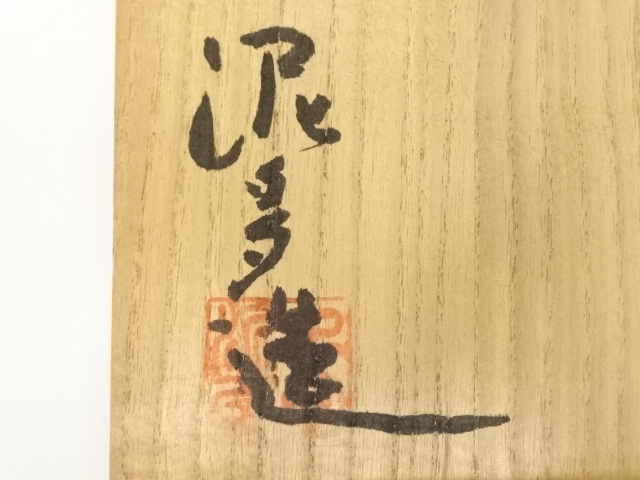 泥多造